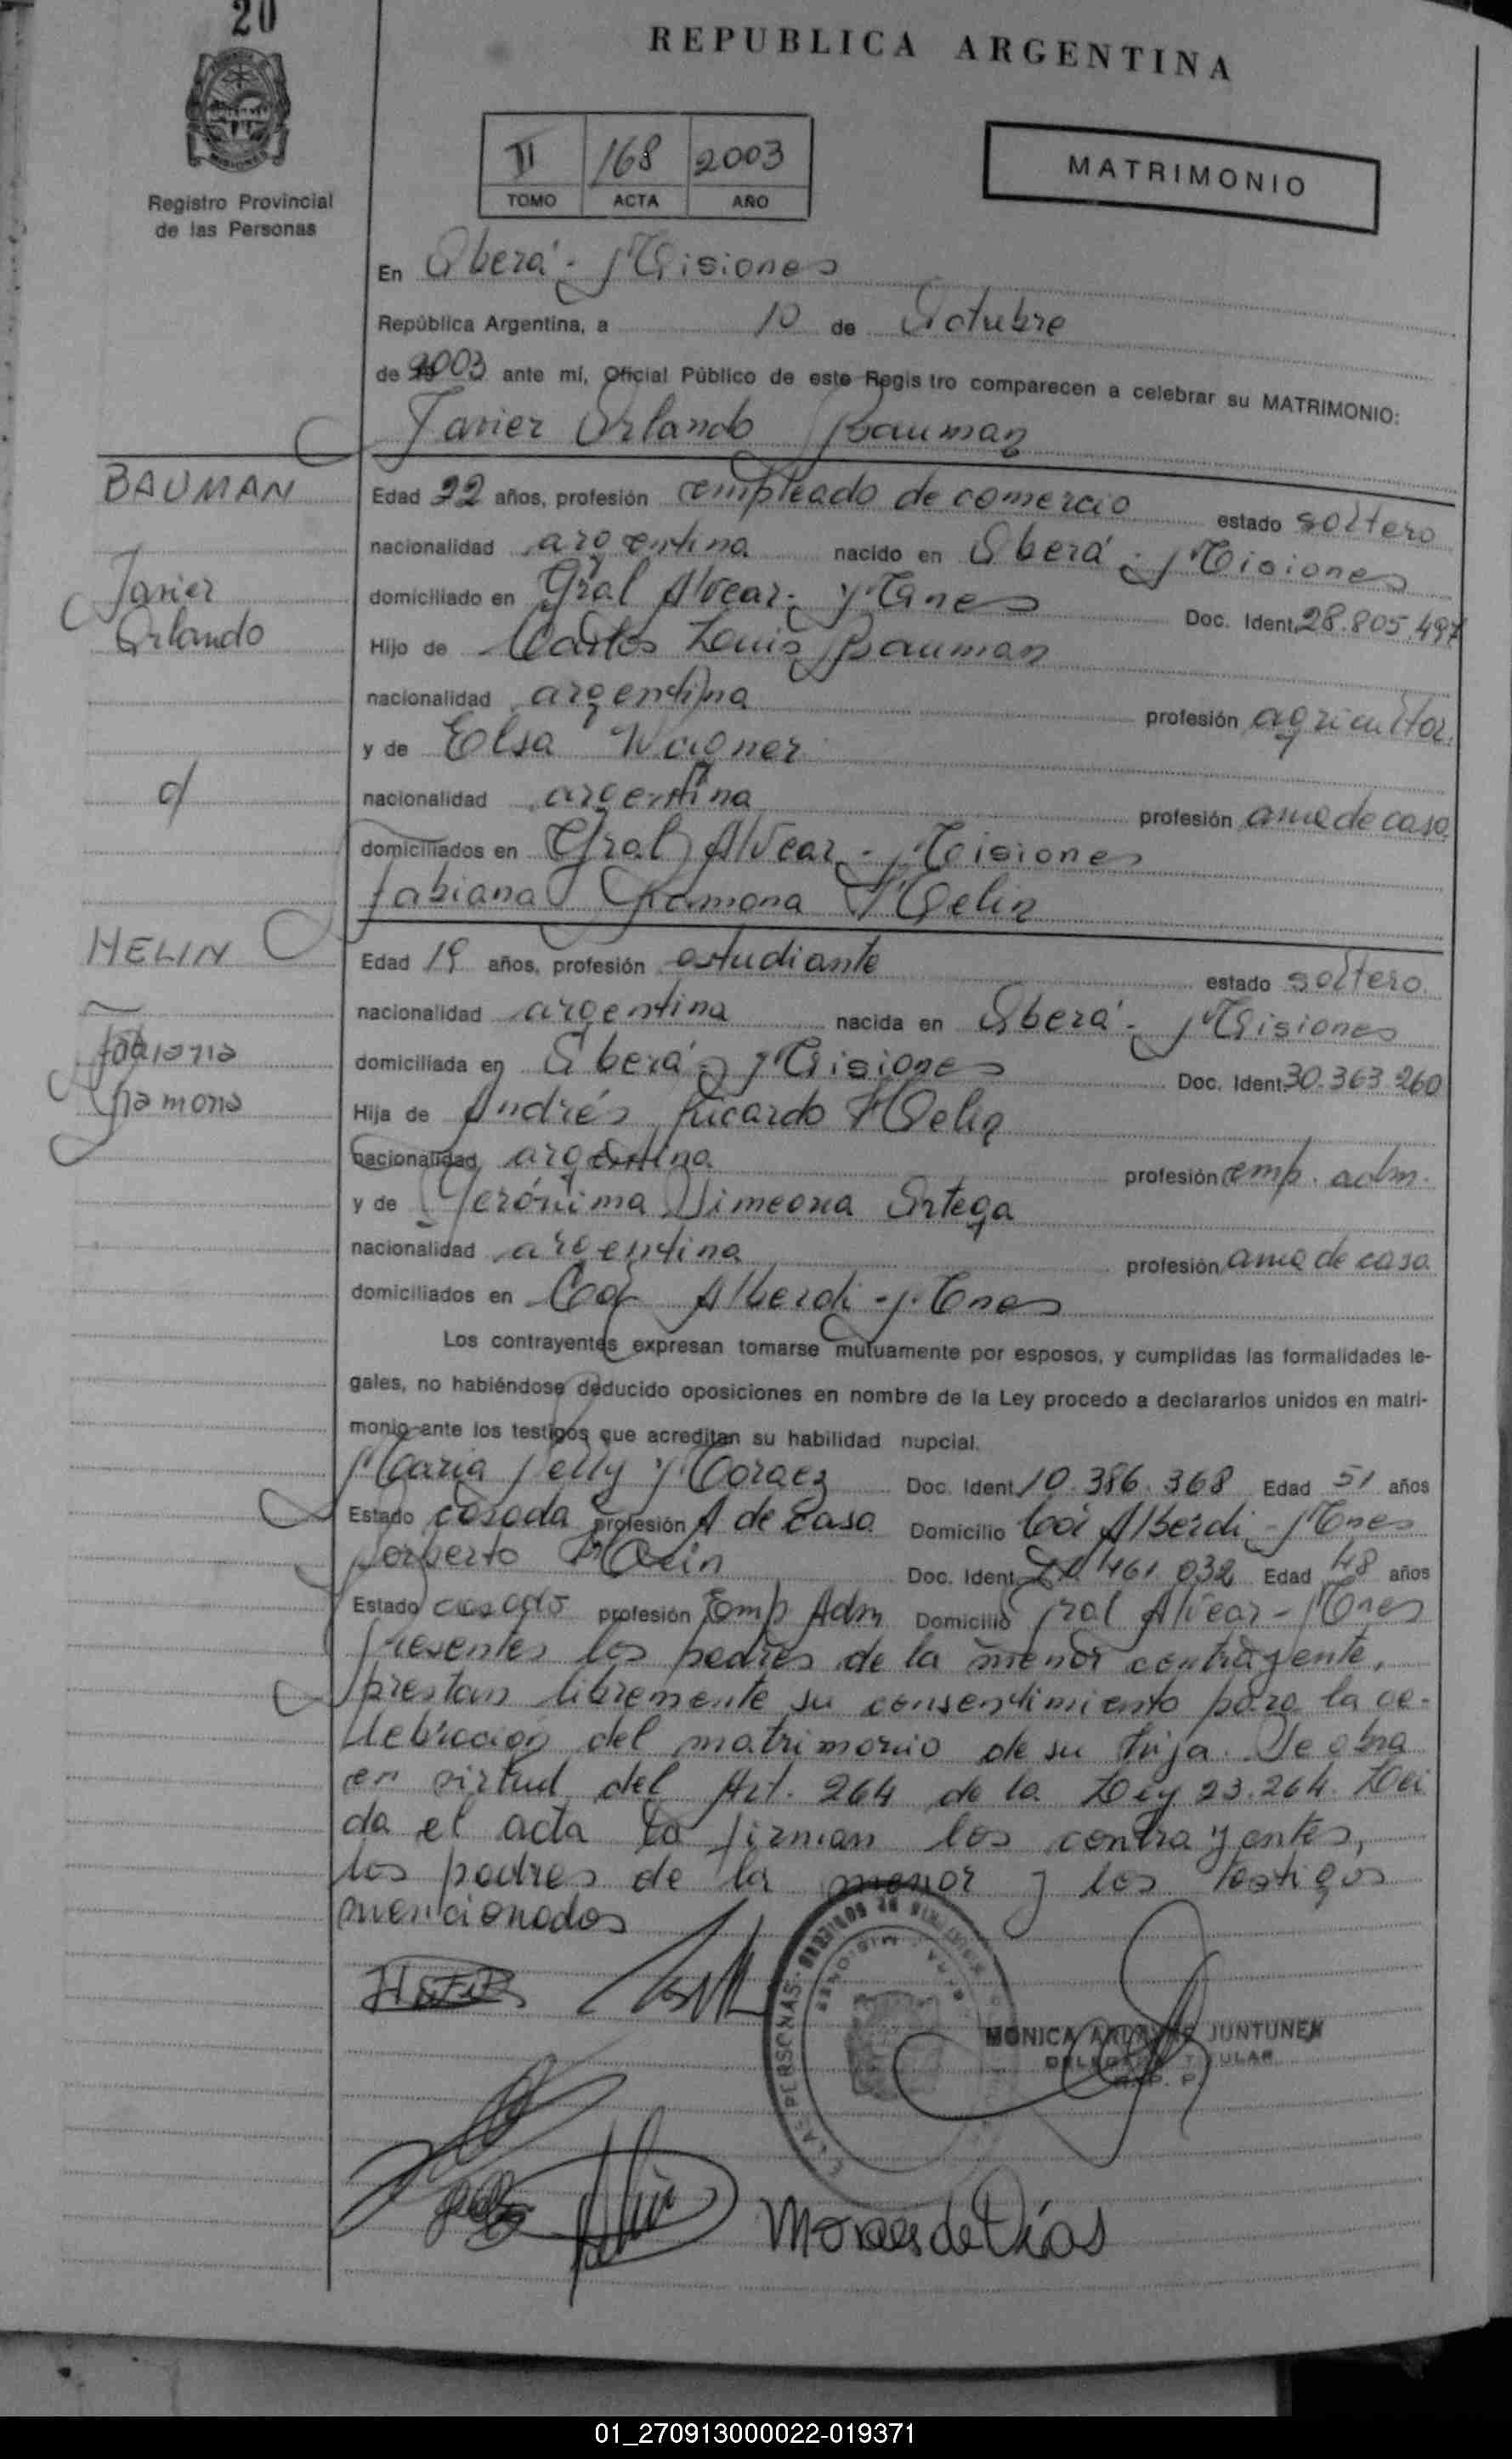 20
REPUBLICA ARGENTINA
Registro Provincial
de las Personas
II 168 2003
TOMO ACTA AÑO
MATRIMONIO
En Oberá - Misiones
República Argentina, a 10 de Octubre
de 2003 ante mí, Oficial Público de este Registro comparecen a celebrar su MATRIMONIO:
Javier Orlando Bauman
BAUMAN
Javier
Orlando
c/
Edad 22 años, profesión empleado de comercio estado soltero
nacionalidad argentina nacido en Oberá - Misiones
domiciliado en Gral Alvear - Mnes Doc. Ident. 28.805.497
Hijo de Carlos Luis Bauman
nacionalidad argentina profesión agricultor.
y de Elsa Wagner
nacionalidad argentina profesión ama de casa
domiciliados en Gral Alvear - Misiones
Fabiana Ramona Helin
HELIN
Fabiana
Ramona
Edad 19 años, profesión estudiante estado soltero
nacionalidad argentina nacida en Oberá - Misiones
domiciliada en Oberá - Misiones Doc. Ident. 30.363.260
Hija de Andrés Ricardo Helin
nacionalidad argentina profesión emp. adm.
y de Jerónima Simeona Ortega
nacionalidad argentina profesión ama de casa
domiciliados en Col Alberdi - Mnes
Los contrayentes expresan tomarse mutuamente por esposos, y cumplidas las formalidades le-
gales, no habiéndose deducido oposiciones en nombre de la Ley procedo a declararlos unidos en matri-
monio ante los testigos que acreditan su habilidad nupcial.
Maria Nelly Moraez Doc. Ident. 10.386.368 Edad 51 años
Estado casada profesión A de casa Domicilio Col Alberdi - Mnes
Norberto Doc. Ident. 461.032 Edad 48 años
Estado casado profesión Emp Adm Domicilio Gral Alvear - Mnes
Presentes los padres de la menor contrayente,
prestan libremente su consentimiento para la ce-
lebración del matrimonio de su hija. Se obra
en virtud del Art. 264 de la Ley 23.264. Lei
da el acta la firman los contrayentes,
los padres de la menor y los testigos
mencionados
MONICA JUNTUNEN
DELEGADA TITULAR
Moraes de Días
01_270913000022-019371